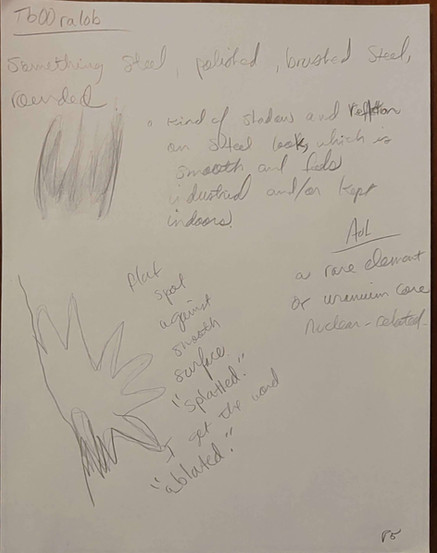 Something steel, polished, brushed steel,
rounded.
• Kind of shadow and
on steel look, which is
smooth and feels
industrial and/or kept
indoors.
AOL
a rare element
or uranium core
nuclear-related.
Flat
spot
against
smooth
surface
"splatted."
I get the word
"ablated."